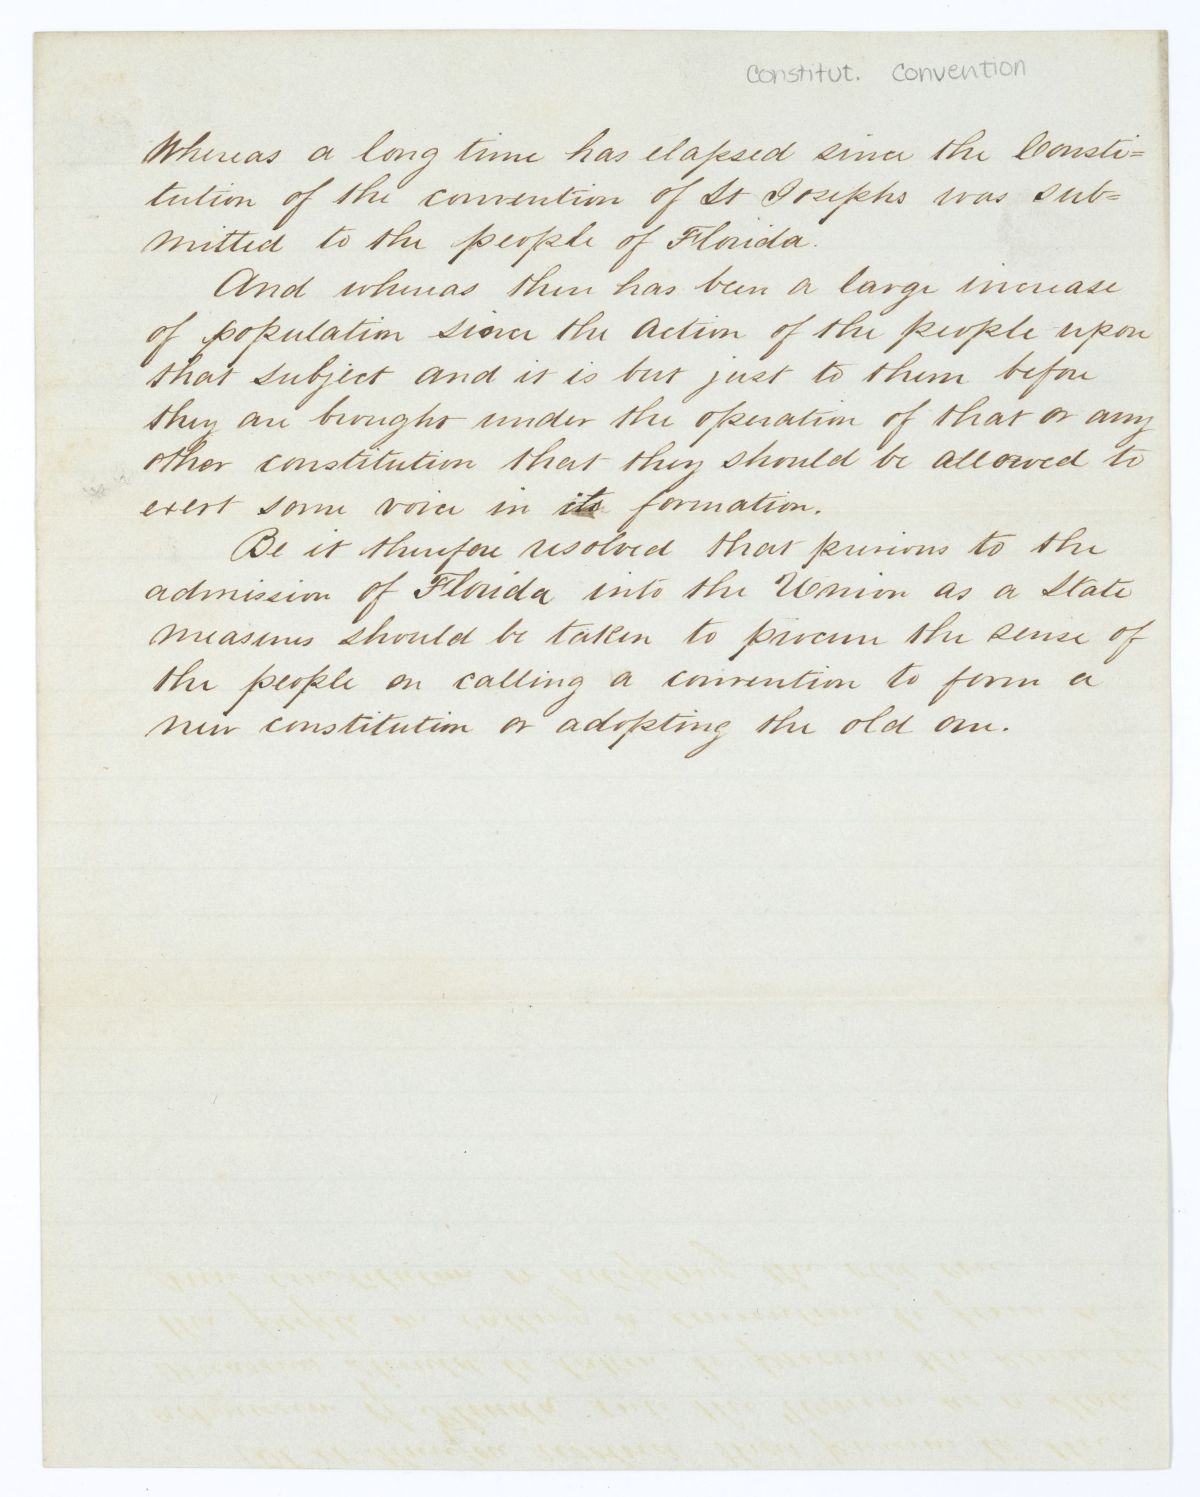 Constitut. Convention
Whereas a long time has elapsed since the Consti=
tution of the convention of St Josephs was sub=
mitted to the people of Florida.
And whereas there has been a large increase
of population since the action of the people upon
that subject and it is but just to them before
they are brought under the operation of that or any
other constitution that they should be allowed to
exert some voice in its formation.
Be it therefore resolved that previous to the
admission of Florida into the Union as a State
measures should be taken to procure the sense of
the people on calling a convention to form a
new constitution or adopting the old one.